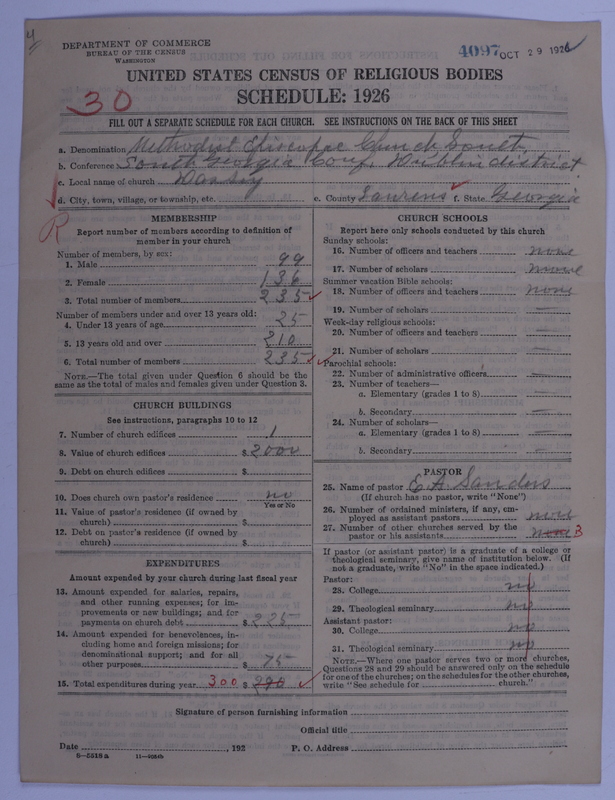 4
DEPARTMENT OF COMMERCE
BUREAU OF THE CENSUS
WASHINGTON
4097 OCT 29 1926
UNITED STATES CENSUS OF RELIGIOUS BODIES
30
SCHEDULE: 1926
FILL OUT A SEPARATE SCHEDULE FOR EACH CHURCH. SEE INSTRUCTIONS ON THE BACK OF THIS SHEET
a. Denomination Methodist Episcopac Church South
b. Conference South Georgia Conf. Dublin district
c. Local name of church
d. City, town, village, or township, etc. e. County Laurens f. State Georgia
R
MEMBERSHIP
Report number of members according to definition of
member in your church
Number of members, by sex:
1. Male 99
2. Female 136
3. Total number of members 235
Number of members under and over 13 years old:
4. Under 13 years of age 25
5. 13 years old and over 210
6. Total number of members 235
NOTE.—The total given under Question 6 should be
same as the total of males and females given under Question 3.
CHURCH BUILDINGS
See instructions, paragraphs 10 to 12
7. Number of church edifices 1
8. Value of church edifices $ 2000
9. Debt on church edifices $
10. Does church own pastor's residence no
Yes or No
11. Value of pastor's residence (if owned by
church) $
12. Debt on pastor's residence (if owned by
church) $
EXPENDITURES
Amount expended by your church during last fiscal year
13. Amount expended for salaries, repairs,
and other running expenses; for im-
provements or new buildings; and for
payments on church debt $ 225
14. Amount expended for benevolences, in-
cluding home and foreign missions; for
denominational support; and for all
other purposes $ 75
15. Total expenditures during year 300 $ 290
CHURCH SCHOOLS
Report here only schools conducted by this church
Sunday schools:
16. Number of officers and teachers none
17. Number of scholars none
Summer vacation Bible schools:
18. Number of officers and teachers none
19. Number of scholars —
Week-day religious schools:
20. Number of officers and teachers —
21. Number of scholars —
Parochial schools:
22. Number of administrative officers —
23. Number of teachers—
a. Elementary (grades 1 to 8) —
b. Secondary —
24. Number of scholars—
a. Elementary (grades 1 to 8) —
b. Secondary —
PASTOR
25. Name of pastor E H Sanders
(If church has no pastor, write "None")
26. Number of ordained ministers, if any, em-
ployed as assistant pastors none
27. Number of other churches served by the
pastor or his assistants none 3
If pastor (or assistant pastor) is a graduate of a college or
theological seminary, give name of institution below. (If
not a graduate, write "No" in the space indicated.)
Pastor:
28. College no
29. Theological seminary no
Assistant pastor:
30. College no
31. Theological seminary no
NOTE.—Where one pastor serves two or more churches,
Questions 28 and 29 should be answered only on the schedule
for one of the churches; on the schedules for the other churches,
write "See schedule for church."
Signature of person furnishing information
Official title
Date , 192 P. O. Address
6—5518a 11—4024b